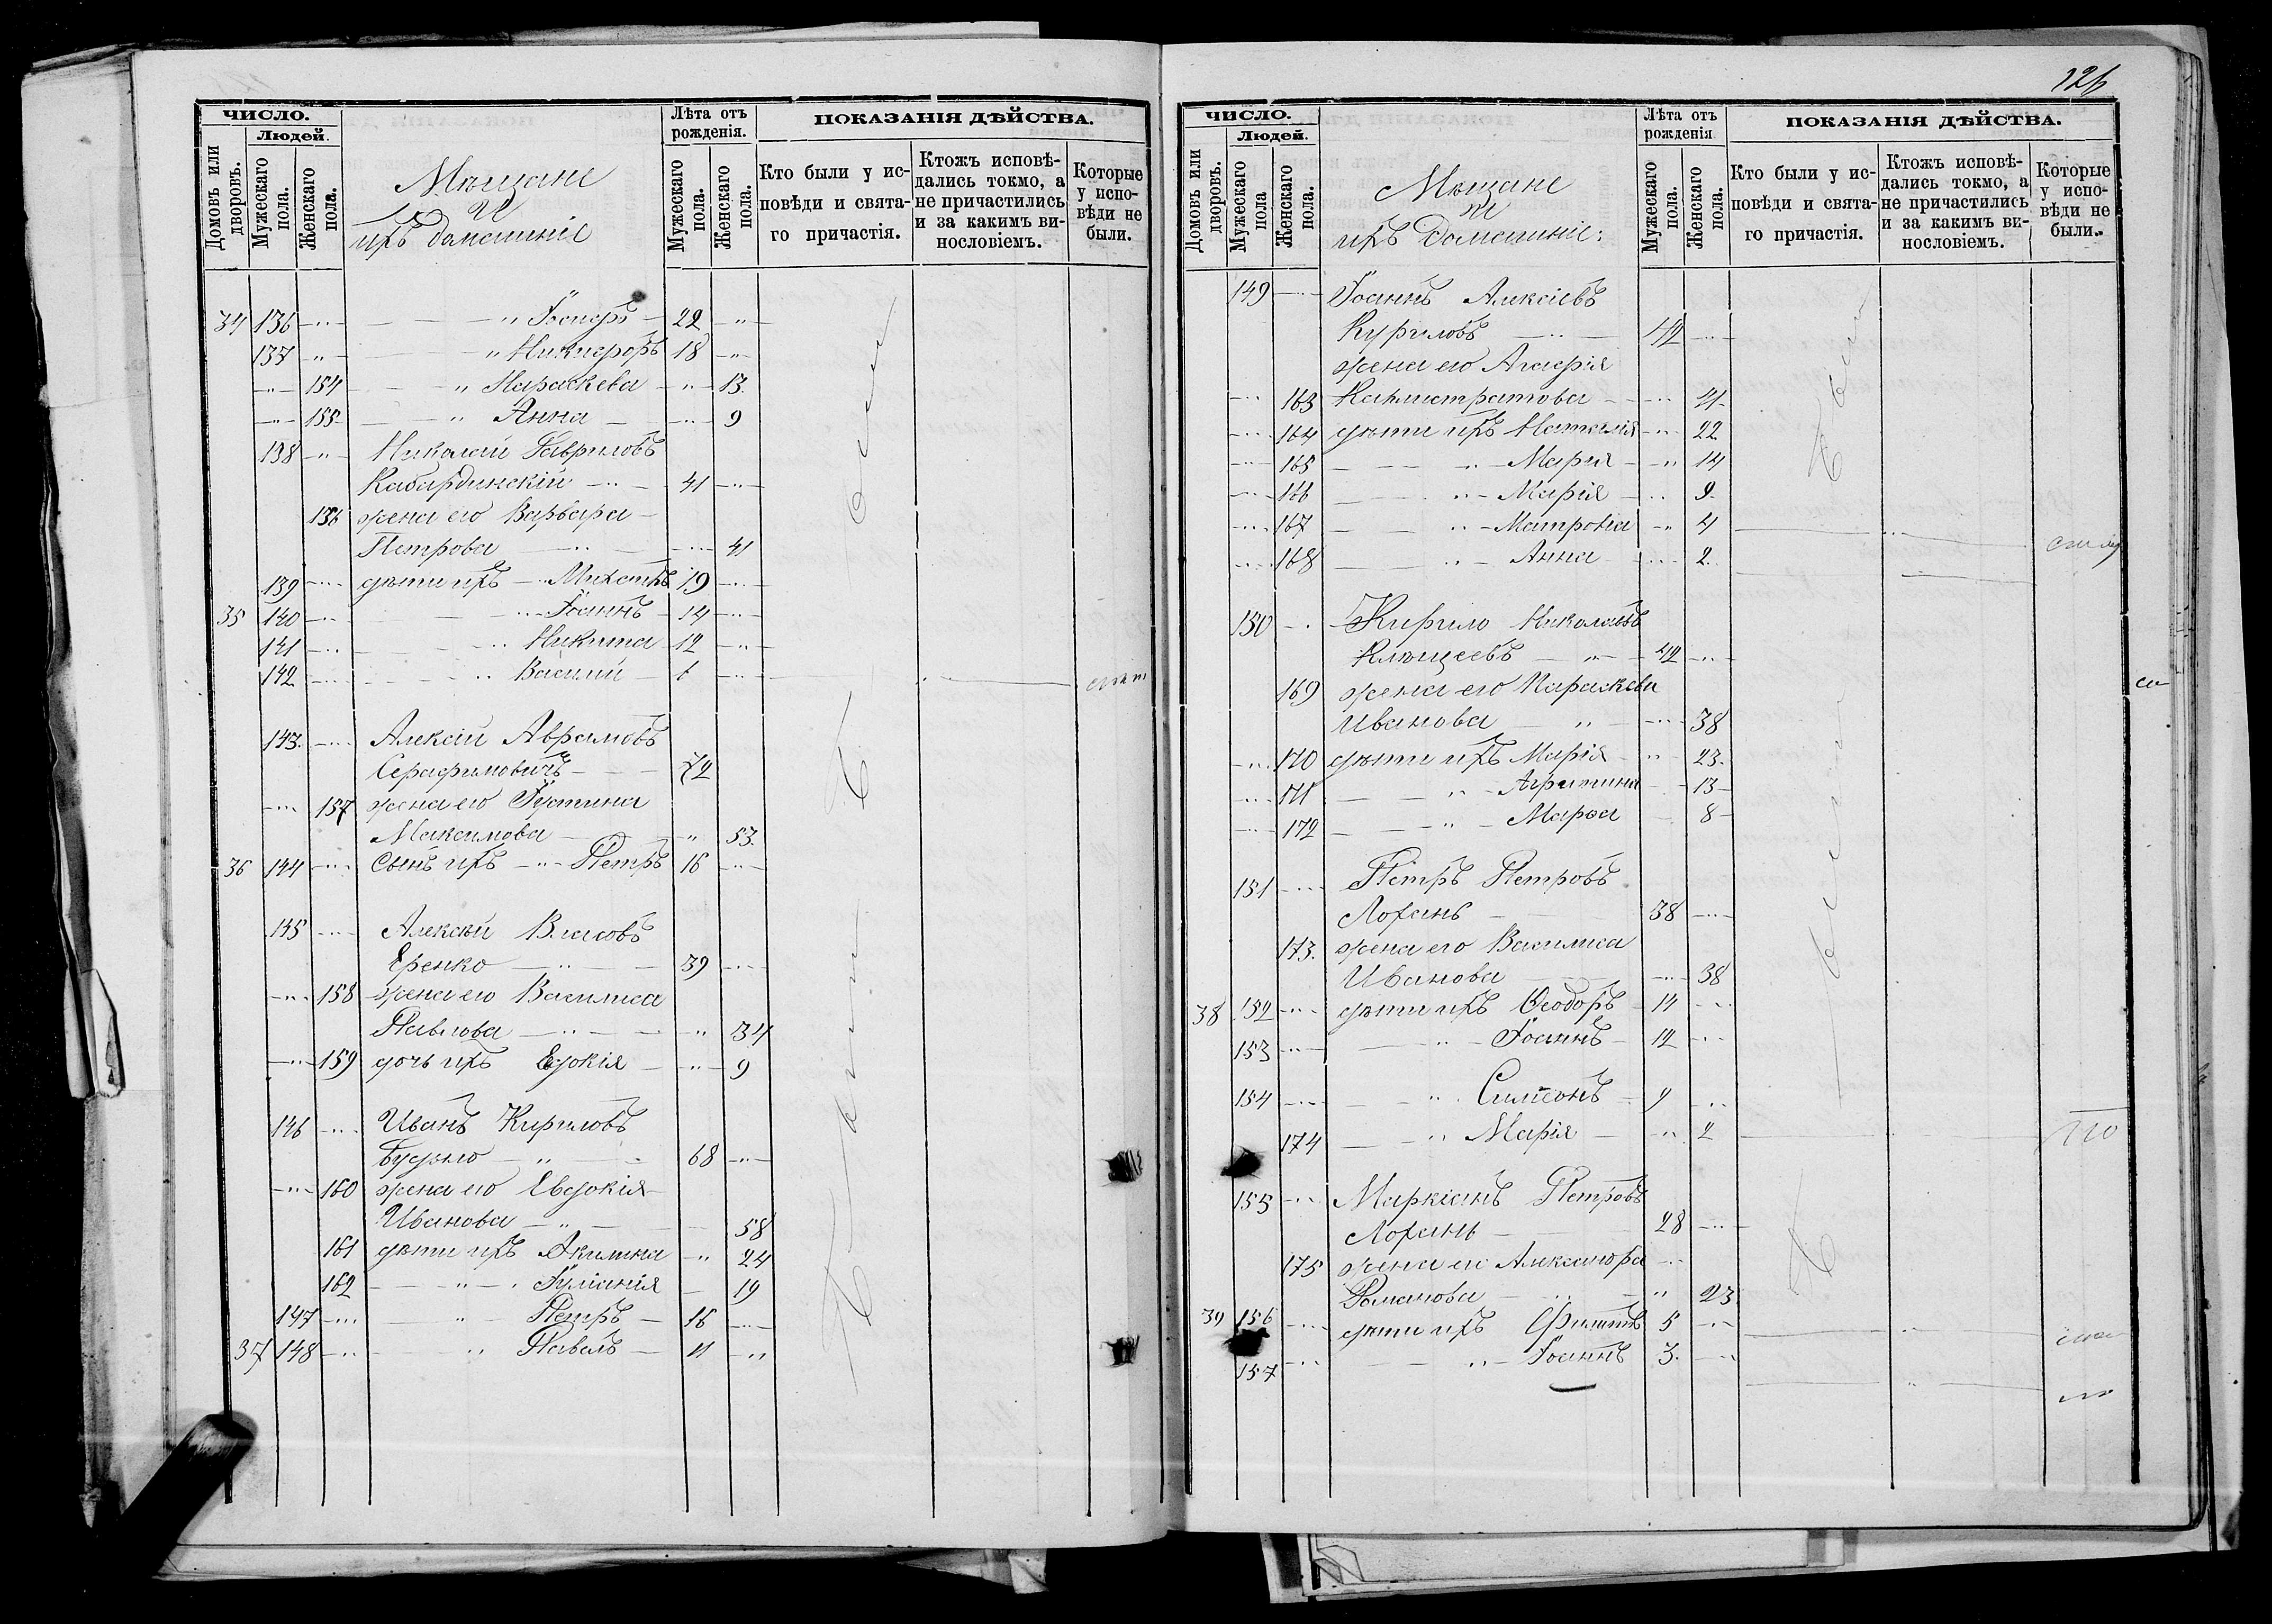 ЧИСЛО.
Людей.
Домовъ или дворовъ.
Мужескаго пола.
Женскаго пола.
Мѣщане
и
ихъ домашніе
Лѣта отъ рожденія.
Мужескаго пола.
Женскаго пола.
ПОКАЗАНІЯ ДѢЙСТВА.
Кто были у исповѣди и святаго причастія.
Ктожъ исповѣдались токмо, а не причастились и за какимъ винословіемъ.
Которые у исповѣди не были.
34 136 Іосифъ 22
137 Никифоръ 18
154 Параскева 13
155 Анна 9
138 Николай Гавриловъ
Кабардинскій 41
156 жена его Варвара
Петрова 41
139 дѣти ихъ Михаилъ 19
35 140 Іоаннъ 14
141 Никита 12
142 Василій 6
143 Алексій Аврамовъ
Серафимовичъ 72
157 жена его Іустина
Максимова 53
36 144 Сынъ ихъ Петръ 16
145 Алексѣй Власовъ
Еренко 39
158 жена его Василиса
Павлова 34
159 дочь ихъ Евдокія 9
146 Иванъ Кириловъ
68
160 жена его Евдокія
Иванова 58
161 дѣти ихъ Акилина 24
162 Іуліанія 19
147 Петръ 16
37 148 Павелъ 11
126
ЧИСЛО.
Людей.
Домовъ или дворовъ.
Мужескаго пола
Женскаго пола.
Мѣщане
и
ихъ домашніе:
Лѣта отъ рожденія
Мужескаго пола.
Женскаго пола.
ПОКАЗАНІЯ ДѢЙСТВА.
Кто были у исповѣди и святаго причастія.
Ктожъ исповѣдались токмо, а не причастились и за какимъ винословіемъ.
Которые у исповѣди не были.
149 Іоаннъ Алексіевъ
Куриловъ 42
жена его Агафія
163 Калистратова 41
164 дѣти ихъ Наталія 22
165 Марія 14
166 Марія 9
167 Матрона 4
168 Анна 2
150 Кирило Николаевъ
42
169 жена его Параскева
Иванова 38
170 дѣти ихъ Марія 23
171 13
172 Марѳа 8
151 Петръ Петровъ
Лохань 38
173 жена его Василиса
Иванова 38
38 152 дѣти ихъ Ѳеодоръ 14
153 Іоаннъ 12
154 Симеонъ 9
174 Марія 2
155 Маркіанъ Петровъ
Лохань 28
175 жена его Александра
Романова 23
39 156 дѣти ихъ Филиппъ 5
157 Іоаннъ 3